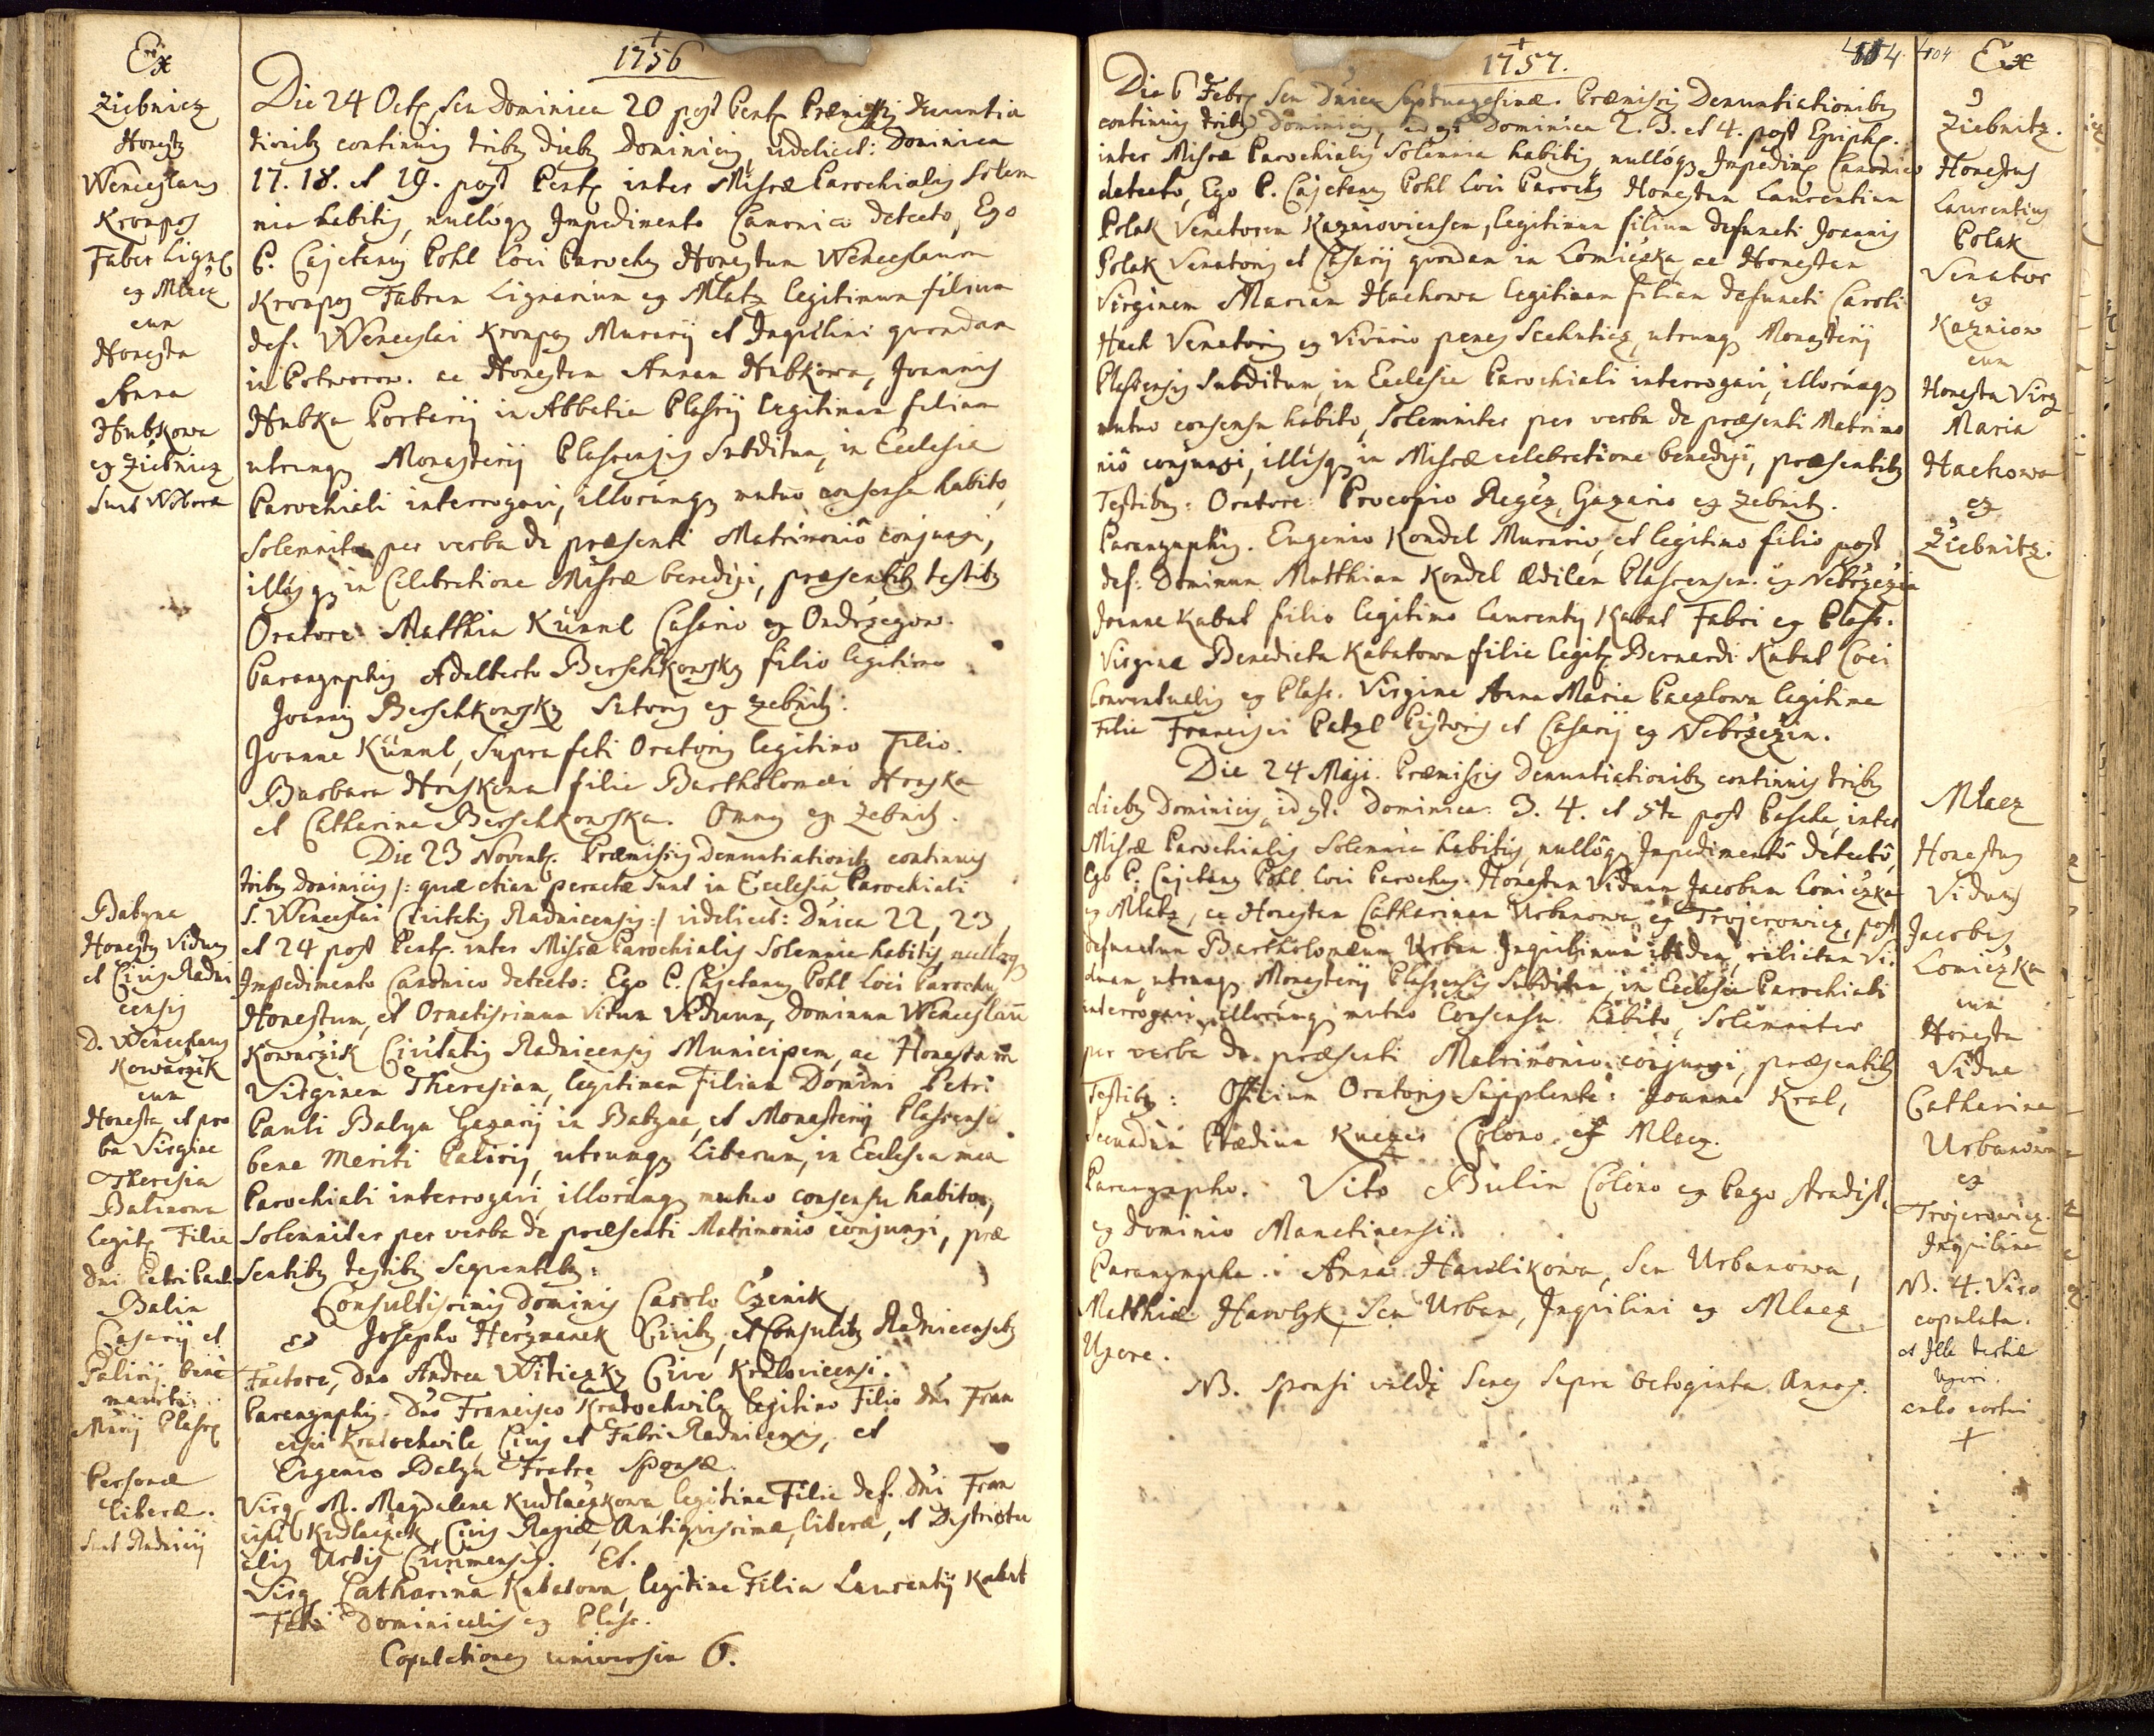 Ex
Ziebnicz
Honestus
Wenceslaus
Kronpos
Faber Lign:
ex Mlacz
cum
Honesta
Anna
Hubkowa
ex Ziebnicz
Babyna
Honestus Viduus
et Civis Radni
censis
D. Wenceslaus
Kowarzik
cum
Honesta et pro
ba Virgine
Theresia
Balinowa
Legit: Filia
Dni Petri Pauli
Balin
Casarij et
Salirij bene
meriti
Personæ
Liberæ.
1756
Die 24 Oct: seu Dominica 20 post Pent: Præmissis Denuntia
tionibus continuis tribus diebus Dominicis, videlicet: Dominica
17. 18. et 19. post Pent: inter Missæ Parochialis Solem
nia habitis, nulloq; Impedimento Canonico detecto, Ego
P. Cajetanus Pohl Loci Parochus Honestum Wenceslaum
Kronpos Fabrum Lignarium ex Mlatz legitimum filium
def: Wenceslai Kronpos Murarij et Inquilini quondam
in Potworow. ac Honestam Annam Hubkowa, Joannis
Hubka Portarij in Abbatia Plassij legitimam filiam
utrumq; Monasterij Plassensis Subditum, in Ecclesia
Parochiali interrogavi, illorumq; mutuo consensu habito,
Solemniter per verba de præsenti Matrimoniô conjunxi,
illosq; in Celebratione Missæ benedixi, præsentibus testibus
Oratore: Matthia Künnl Casario ex Ondrzegow.
Paranymphis Adalberto Berschkowsky filio legitimo
Joannis Berschkowsky Sutoris ex Zebnitz.
Joanne Künnl, Supra fati Oratoris legitimo Filio.
Barbara Hruskowa filia Bartholomæi Hruska
et Catharina Berschkowska. Omnes ex Zebnitz.
Die 23 Novemb: Præmissis Denuntiationibus continuis
tribus dominicis /: quæ etiam peractæ sunt in Ecclesia Parochiali
S. Wenceslai Civitatis Radnicensis :/ videlicet: Dnica 22, 23,
et 24 post Pent: inter Missæ Parochialis Solemnia habitis, nulloq;
Impedimento Canonico detecto: Ego P. Cajetanus Pohl Loci Parochus
Honestum, et Ornatissimum Virum Viduum, Dominum Wenceslaum
Kowarzik Civitatis Radnicensis Municipem, ac Honestam
Virginem Theresiam, legitimam Filiam Domini Petri
Pauli Balyn Gazarij in Babyna, et Monasterij Plassensis
bene Meriti Salirij, utrumq; Liberum, in Ecclesia mea
Parochiali interrogavi, illorumq; mutuo consensu habito,
Solemniter per verba de præsenti Matrimonio conjunxi, præ
sentibus testibus Sequentibus:
Consultissimis Dominis Carolo Czenik
et Josepho Herzmanek Civibus, et Consulibus Radnicensibus
Factore, Dno Andrea Witiczky Cive Kralovicensi.
Paranymphis. Dno Francisco Kratochwile legitimo Filio Dni Fran
cisci Kratochwile, Civis et Fabri Radnicensis, et
Eugenio Balyn Fratre Sponsæ.
Virg. M. Magdalena Kudlaczkowa legitima Filia def. Dni Fran
cisci Kudlaczek, Civis Regiæ, Antiquissimæ, liberæ, et Districtu
alis Urbis Caurimensis. Et.
Virg. Catharina Kabatowa, legitima Filia Laurentij Kabat
Fabri Dominicalis ex Plass.
Copulationes universim 6.
1757.
404
Die 6 Febr: Seu Dnica Septuagesimæ. Præmissis Denuntiationibus
continuis tribus Dominicis, id est Dominica 2. 3. et 4. post Epiph:
inter Missæ Parochialis Solemnia habitis, nulloq; Impedim: Canonico
detecto, Ego P. Cajetanus Pohl Loci Parochus Honestum Laurentium
Polak Venatorem Kazniowiensem, legitimum filium defuncti Joannis
Polak Venatoris et Casarij quondam in Lomiczka, ac Honestam
Virginem Mariam Hachowa legitimam filiam defuncti Caroli
Hach Venatoris ex Vivario penes Sechutitz, utrumq; Monasterij
Plassensis Subditum, in Ecclesia Parochiali interrogavi, illorumq;
mutuo consensu habito, Solemniter per verba de præsenti Matrimo
niô conjunxi, illosq; in Missæ celebratione benedixi, præsentibus
Testibus: Oratore: Procopio Regez, Gazario ex Zebnitz.
Paranymphis. Eugenio Kondel Murario, et legitimo filio post
def: Dominum Matthiam Kondel Ædilem Plassensem. ex Nebrzezin
Joanne Kabat filio legitimo Laurentij Kabat Fabri ex Plass.
Virgine Benedicta Kabatowa filia legit: Bernardi Kabat Coci
Conventualis ex Plass. Virgine Anna Maria Paczlowa legitima
Filia Francisci Patzl Pistoris et Casarij ex Nebrzezin.
Die 24 Maji. Præmissis Denuntiationibus continuis tribus
diebus Dominicis, id est: Dominica: 3. 4. et 5ta post Pascha, inter
Missæ Parochialis Solemnia habitis, nulloq; Impedimentô detectô,
Ego P. Cajetanus Pohl Loci Parochus. Honestum Viduum Jacobum Lomiczka
ex Mlatz, ac Honestam Catharinam Urbanowa, ex Trojerowicz, post
defunctum Bartholomæum Urban Inquilinum ibidem, relictam Vi
duam, utrumq; Monasterij Plassensis Subditum, in Ecclesia Parochiali
interrogavi, illorumq; mutuo Consensu habito, Solemniter
per verba de præsenti Matrimonio conjunxi, præsentibus
Testibus: Officium Oratoris Supplente: Joanne Kral,
Colono ex Mlacz.
Paranympho. Vito Bulin Colono ex Pago Hradist,
ex Dominio Manetinensi.
Paranympha: Anna Hawlikowa, Seu Urbanowa,
Matthiæ Hawlyk, Seu Urban, Inquilini ex Mlacz
Uxore.
NB. Sponsi valde Senes Supra octoginta Annos.
404 Ex
Ziebnitz.
Honestus
Laurentius
Polak
Venator
ex
Kazniow
cum
Honesta Virg
Maria
Hachowa
ex
Ziebnitz.
Mlacz
Honestus
Viduus
Jacobus
Lomiczka
cum
Honesta
Vidua
Catharina
Urbanowa
ex
Trojerowicz.
Inquilina
NB. 4. Viro
copulata.
et Ille tertiæ
Uxori.